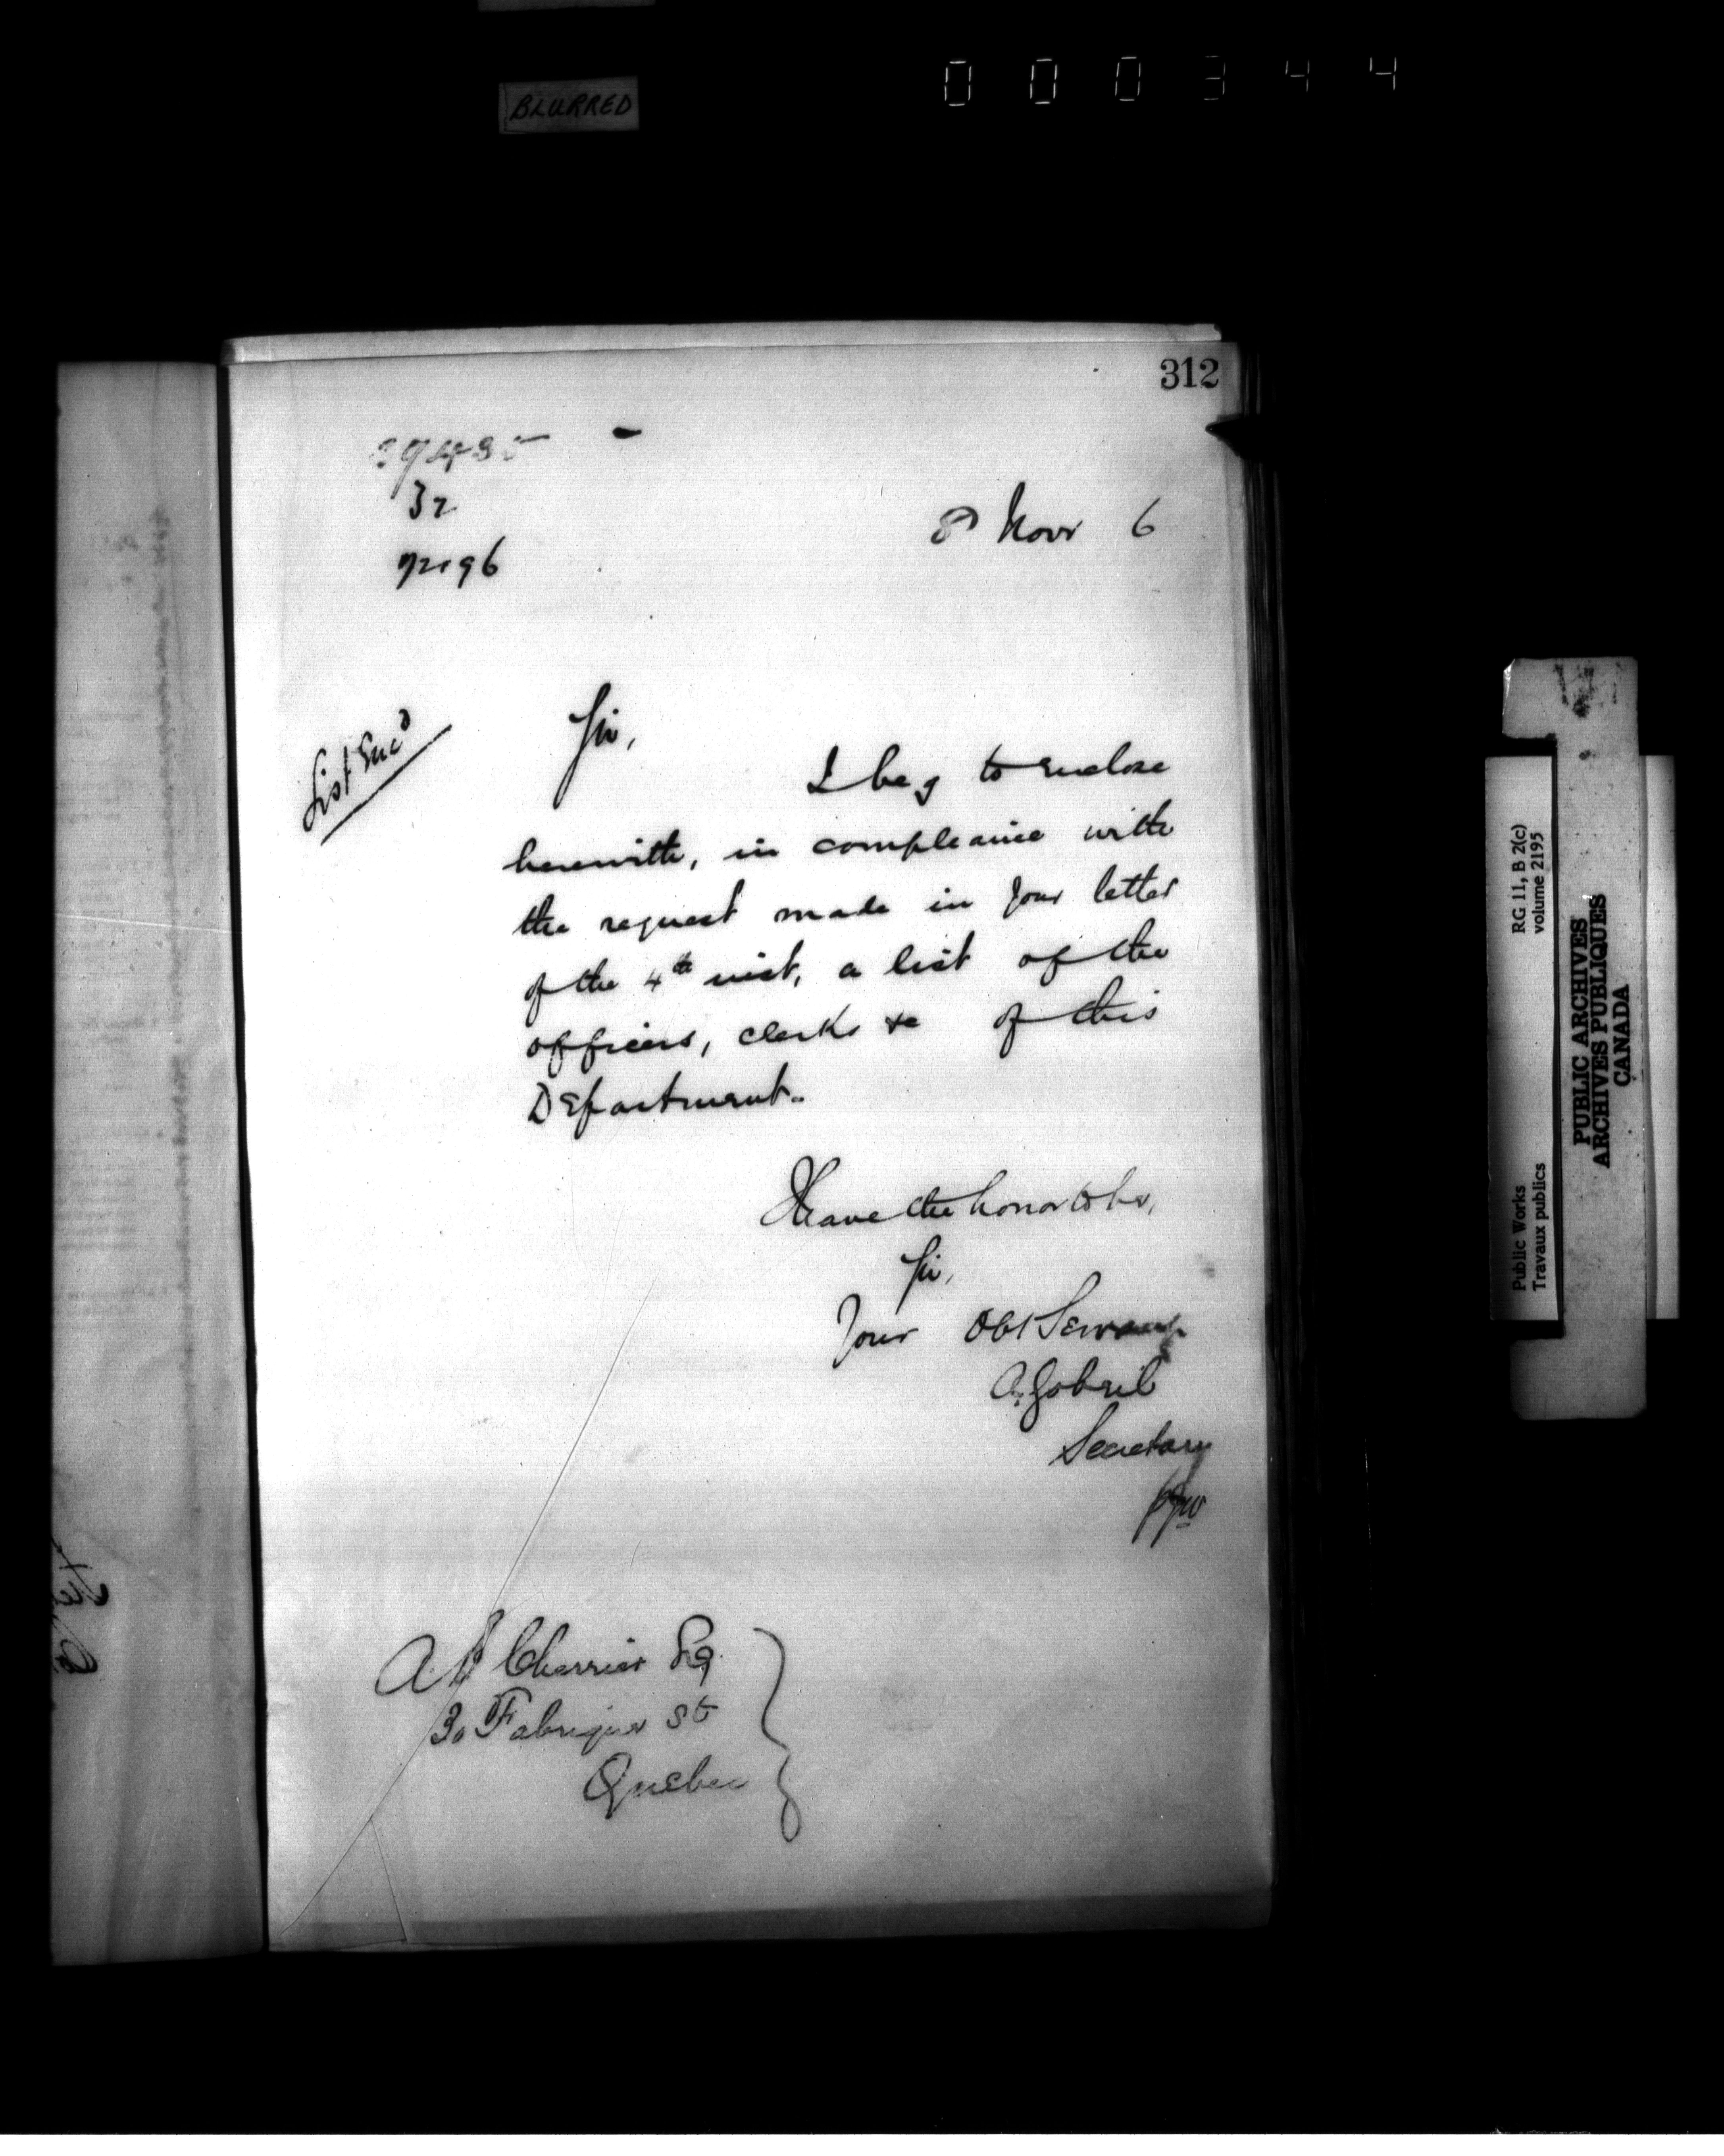 BLURRED
000344
312
32
72196
8 Novr 6
List Encd
Sir,
I beg to enclose
herewith, in compliance with
the request made in your letter
of the 4th inst, a list of the
officers, clerks &c of this
Department.
I have the honor to be,
Sir,
Your Obt Servant
A. Gobeil
Secretary
A. B Cherrier Esq.
30 Fabrique St
Quebec
Public Works
Travaux publics
RG 11, B 2(c)
volume 2195
PUBLIC ARCHIVES
ARCHIVES PUBLIQUES
CANADA